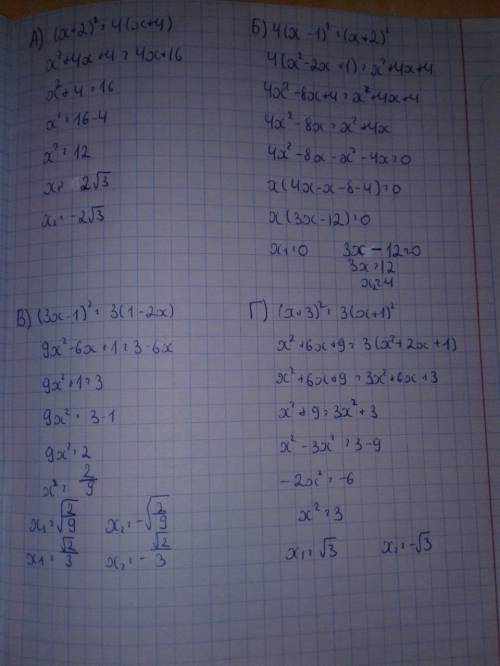 А) (x+2)² = 4(x+4)
x²+4x+4 = 4x+16
x²+4 = 16
x² = 16-4
x² = 12
x₁ = 2√3
x₂ = -2√3
Б) 4(x-1)² = (x+2)²
4(x²-2x+1) = x²+4x+4
4x²-8x+4 = x²+4x+4
4x²-8x = x²+4x
4x²-8x-x²-4x=0
x(4x-x-8-4)=0
x(3x-12)=0
x₁=0 3x-12=0
3x=12
x₂=4
В) (3x-1)² = 3(1-2x)
9x²-6x+1=3-6x
9x²+1=3
9x² = 3-1
9x²=2
x² = 2/9
x₁=√2/9 x₂=-√2/9
x₁=√2/3 x₂=-√2/3
Г) (x+3)² = 3(x+1)²
x²+6x+9=3(x²+2x+1)
x²+6x+9=3x²+6x+3
x²+9=3x²+3
x²-3x²=3-9
-2x²=-6
x²=3
x₁=√3 x₂=-√3